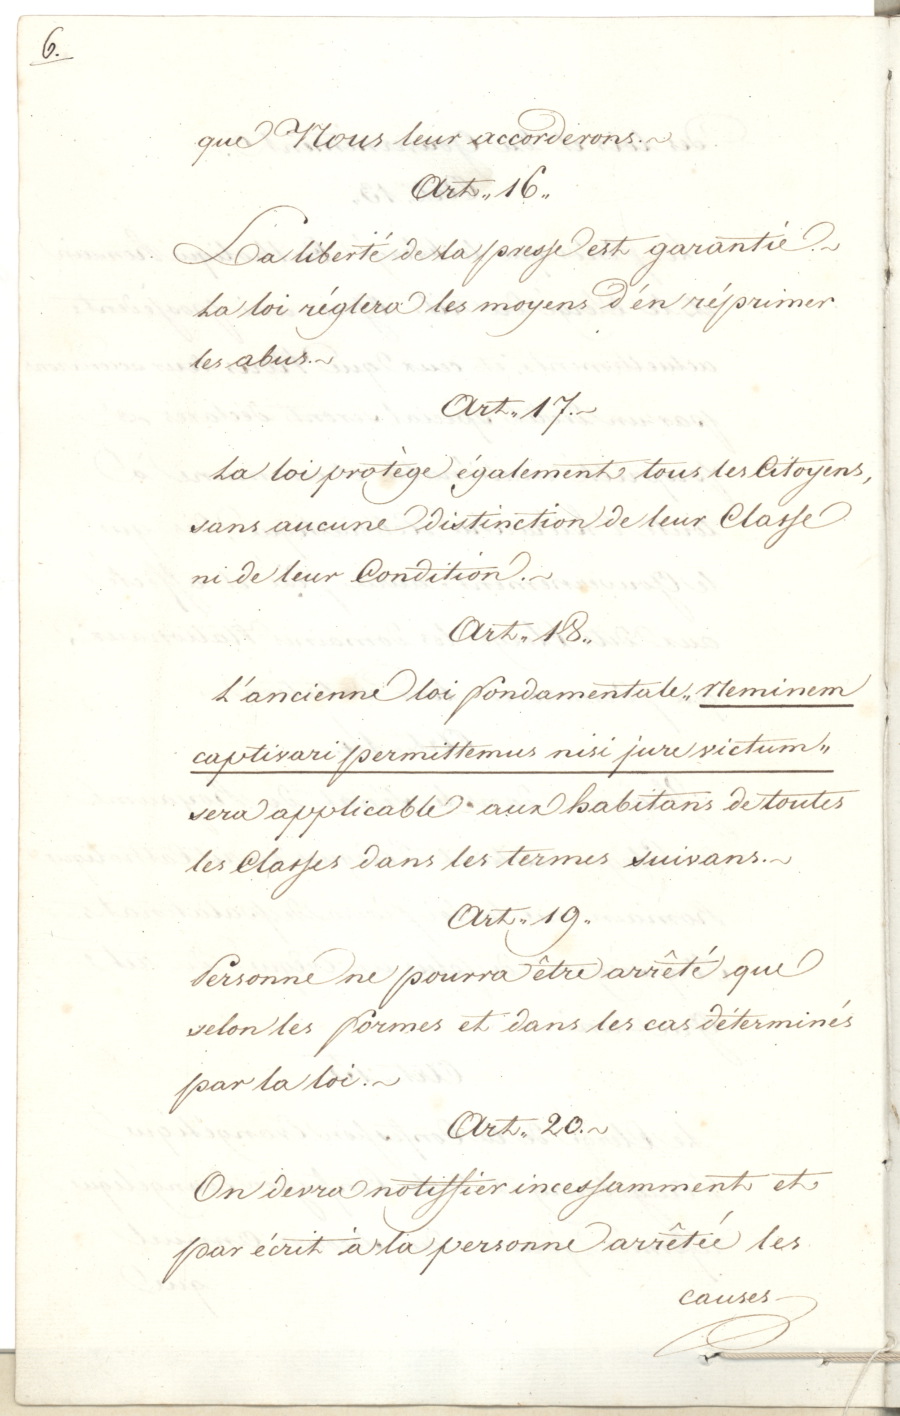 6.
que Nous leur accorderons.~
Art„ 16„
La liberté de la presse est garantié.~
La loi réglera les moyens d'én réprimer
les abus.~
Art„ 17.~
La loi protège également tous les Citoyens,
sans aucune distinction de leur Classe
ni de leur Condition.~
Art„ 18„
L'ancienne loi fondamentale„ Neminem
captivari permittemus nisi jure victum„
sera applicable aux habitans de toutes
les Classes dans les termes suivans.~
Art„ 19„
Personne ne pourra être arrêté que
selon les formes et dans les cas déterminés
par la loi.~
Art„ 20.~
On devra notiffier incessamment et
par écrit à la personne arrêtée les
causes